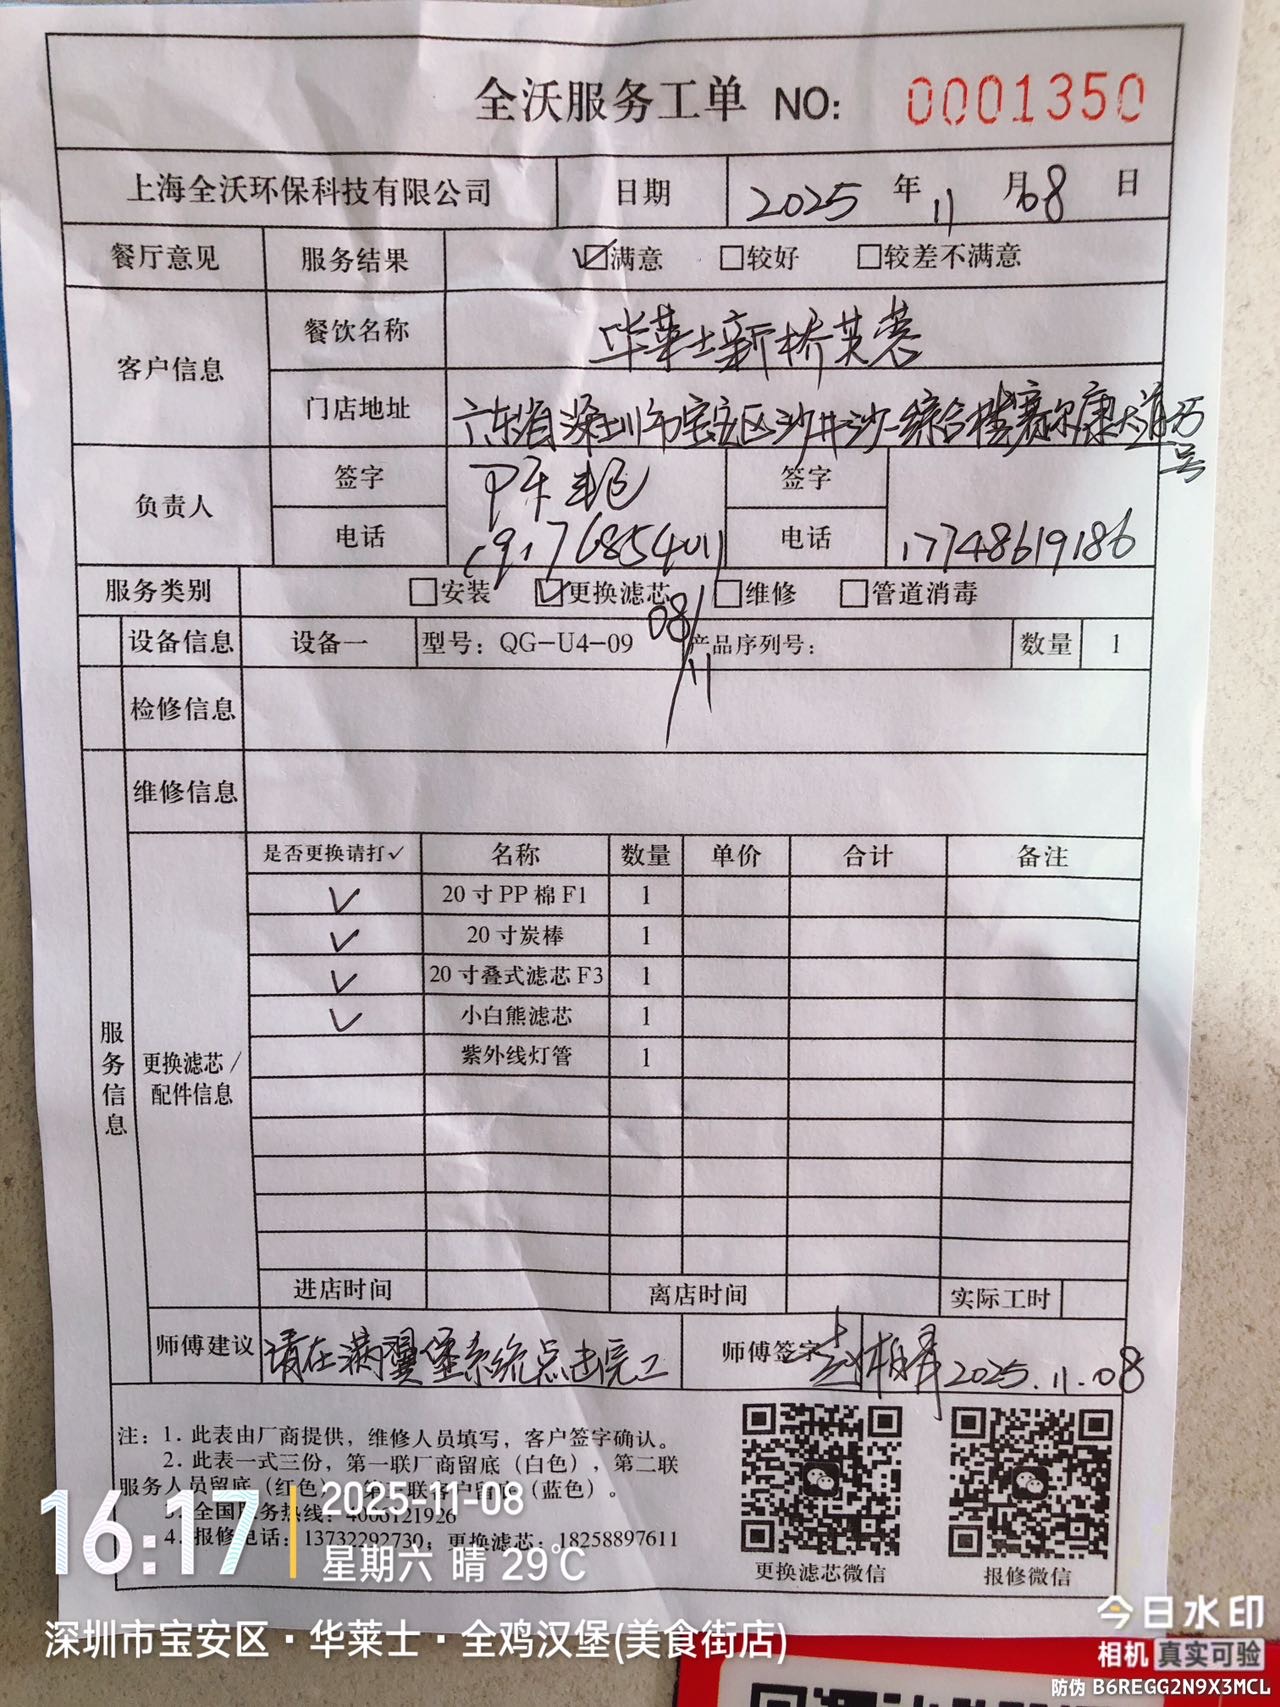 全沃服务工单 NO: 0001350
上海全沃环保科技有限公司 日期 2025 年 11 月 08 日
餐厅意见 服务结果 ☑满意 □较好 □较差不满意
客户信息 餐饮名称 华莱士新桥芙蓉
门店地址 广东省深圳市宝安区沙井沙一综合楼赛尔康大道
号
负责人 签字 签字
电话 电话 17748619186
服务类别 □安装 ☑更换滤芯 □维修 □管道消毒
08/11
设备信息 设备一 型号：QG-U4-09 产品序列号： 数量 1
检修信息
维修信息
服务信息
更换滤芯/配件信息
是否更换请打✓ 名称 数量 单价 合计 备注
✓ 20寸PP棉F1 1
✓ 20寸炭棒 1
✓ 20寸叠式滤芯F3 1
✓ 小白熊滤芯 1
紫外线灯管 1
进店时间 离店时间 实际工时
师傅建议 请在满翼堡系统点击完工 师傅签字 2025.11.08
注：1. 此表由厂商提供，维修人员填写，客户签字确认。
2. 此表一式三份，第一联厂商留底（白色），第二联
服务人员留底（红色），第三联客户留底（蓝色）。
3. 全国服务热线：4006121926
4. 报修电话：13732292730；更换滤芯：18258897611
更换滤芯微信 报修微信
16:17 2025-11-08
星期六 晴 29℃
深圳市宝安区·华莱士·全鸡汉堡(美食街店)
今日水印
相机 真实可验
防伪 B6REGG2N9X3MCL